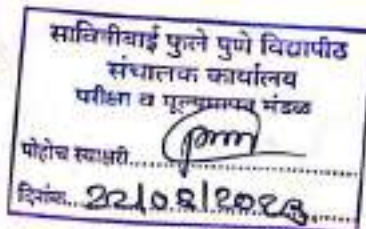 सावित्रीबाई फुले पुणे विद्यापीठ
संचालक कार्यालय
परीक्षा व मूल्यमापन मंडळ
पोहोच स्वाक्षरी
दिनांक